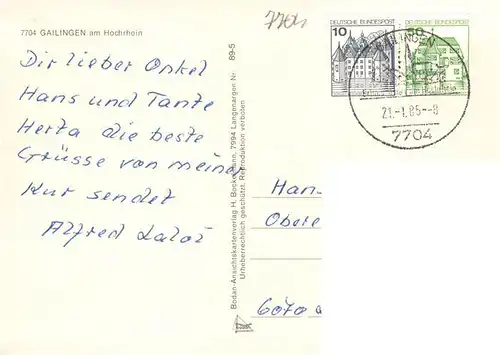 7704 GAILINGEN am Hochrhein
Dir lieber Onkel
Hans und Tante
Herta die beste
Grüsse von meiner
Kur sendet
Alfred
Bodan-Ansichtskartenverlag H. Bockelmann, 7994 Langenargen Nr. 89-5
Urheberrechtlich geschützt. Reproduktion verboten
7704
DEUTSCHE BUNDESPOST
10
DEUTSCHE BUNDESPOST
50
GAILINGEN
21.-1.85--8
7704
Han-
Obere
6070